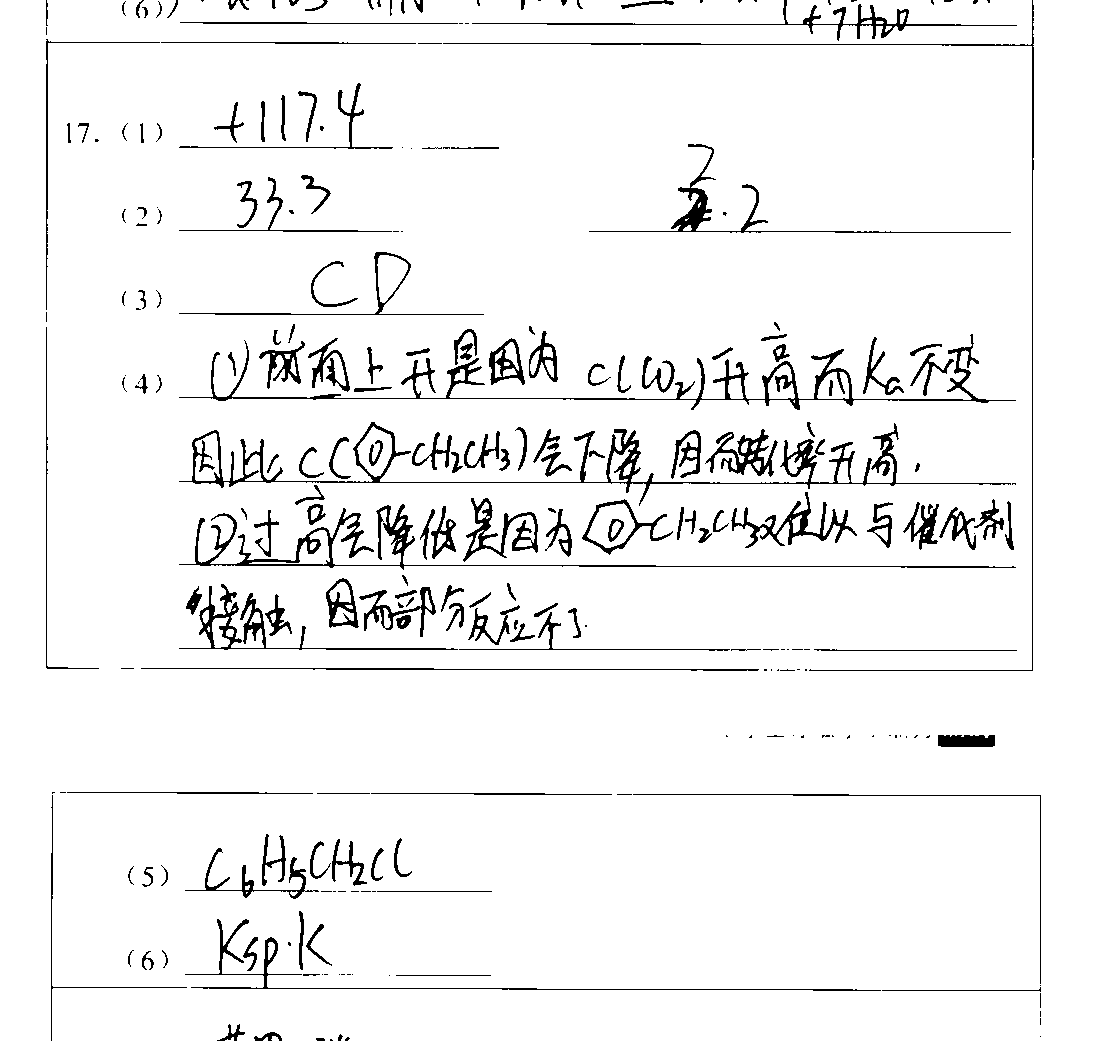 (6)
+7H₂O
17. (1) +117.4
(2) 33.3 2.2
(3) CD
(4) ①前面上升是因为 c(CO₂)升高而Ka不变
因此 c(⌬-CH₂CH₃)会下降,因而转化率升高.
②过高会降低是因为⌬-CH₂CH₃又难以与催化剂
接触,因而部分反应不了.
(5) C₆H₅CH₂Cl
(6) Ksp·K